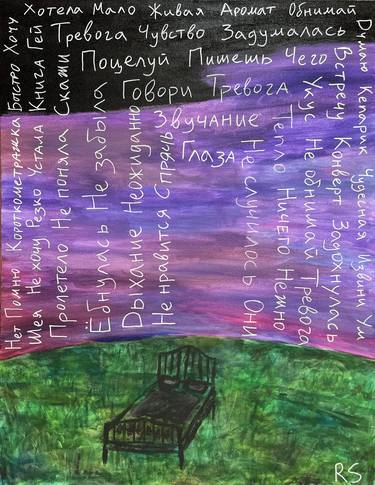 Хотела Мало Живая Аромат Обнимай
Тревога Чувство Задумалась
Поцелуй Пишешь Чего
Говори Тревога
Звучание
Глаза
Нет Помню Короткометражка Быстро Хочу
Шея Не хочу Резко Устала Книга Гей
Пролетело Не поняла Скажи
Ёбнулась Не забыла
Дыхание Неожиданно
Не нравится Спрячь
Не случилось Они
Тепло Ничего Нежно
Укус Не обнимай Тревога
Встречу Конверт Задохнулась
Думаю Кепарик Чудесная Извини Ум
RS